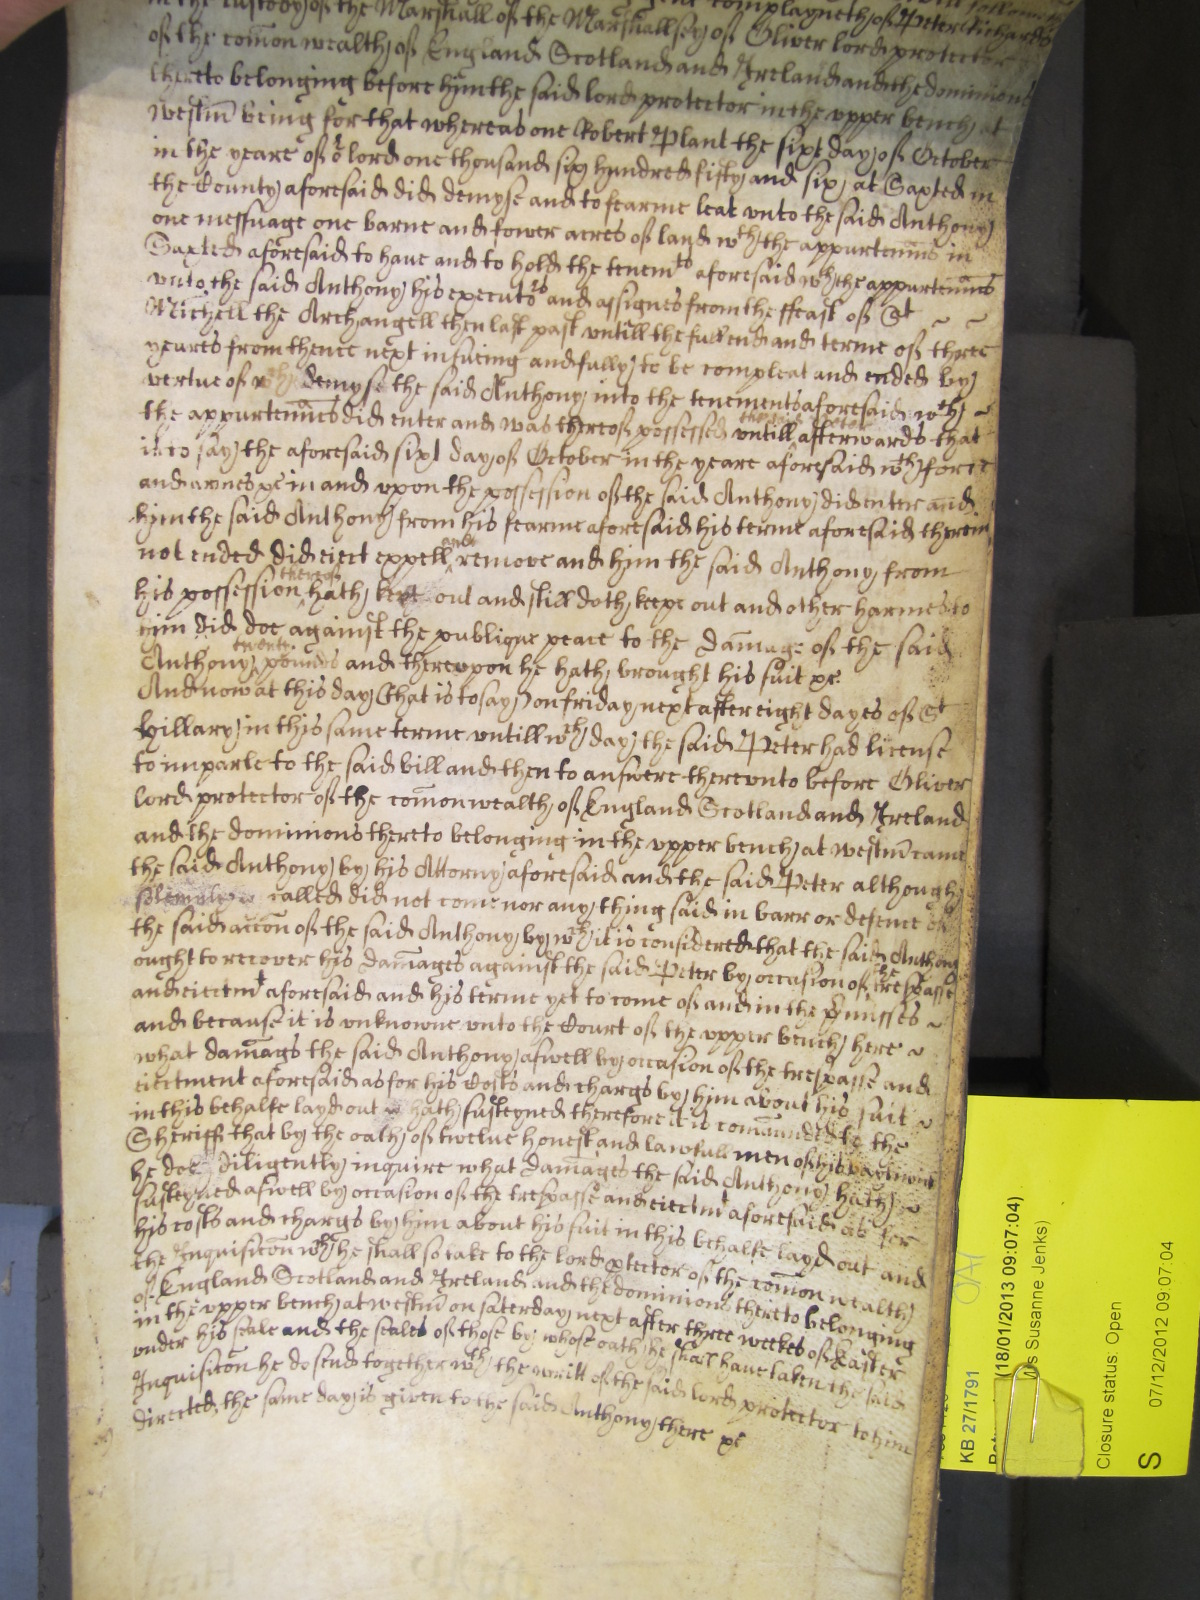 complayneth of Peter Richards
in the custody of the Marshall of the Marshallsey of Oliver lord protector
of the com̄on wealth of England Scotland and Ireland and the dominions
thereto belonging before him the said lord protector in the vpper bench at
westm̄ being for that whereas one Robert Plant the sixt day of October
in the yeare of oʳ lord one thousand six hundred fifty and six at Saxted in
the County aforesaid did demyse and to fearme lett vnto the said Anthony
one messuage one barne and fower acres of land wᵗʰ the appurtenn̄cs in
Saxted aforesaid to haue and to hold the tenemᵗˢ aforesaid wᵗʰ the appurten̄nces
vnto the said Anthony his executoʳˢ and assignes from the ffeast of Sᵗ
Michell the Archangell then last past vntill the full end and terme of three
yeares from thence next insueing and fully to be compleat and ended by
vertue of wᶜʰ demyse the said Anthony into the tenements aforesaid wᵗʰ
the appurten̄nces did enter and was thereof possessed vntill afterwards that
is to say the aforesaid sixt day of October in the yeare aforesaid wᵗʰ force
and armes &c in and vpon the possession of the said Anthony did enter and
him the said Anthony from his fearme aforesaid his terme aforesaid therein
not ended did eiect expell and remove and him the said Anthony from
his possession thereof hath kept out and still doth keepe out and other harmes to
him did doe against the publique peace to the dam̄age of the said
Anthony twenty pounds and therevpon he hath brought his suit &c
And now at this day (that is to say) on friday next after eight dayes of Sᵗ
Hillary in this same terme vntill wᶜʰ day the said Peter had license
to imparle to the said bill and then to answere therevnto before Oliver
lord protector of the com̄on wealth of England Scotland and Ireland
and the dominions thereto belonging in the vpper bench at westm̄ came
the said Anthony by his Attorny aforesaid and the said Peter although
solemply called did not come nor any thing said in barr or defence of
the said acc̄on of the said Anthony by wᶜʰ it is considered that the said Anthony
ought to recover his dam̄ages against the said Peter by occasion of the trespasse
and eiectmᵗ aforesaid and his terme yet to come of and in the p̄misses
and because it is vnknowne vnto the Court of the vpper bench here
what dam̄ags the said Anthony aswell by occasion of the trespasse and
eiectment aforesaid as for his Costs and chargs by him about his suit
in this behalfe layd out hath susteyned therefore it is com̄aunded to the
Sheriff that by the oath of twelue honest and lawfull men of his baylywick
he doe diligently inquire what dam̄ages the said Anthony hath
susteyned aswell by occasion of the trespasse and eiectmᵗ aforesaid as for
his costs and chargs by him about his suit in this behalfe layd out and
the Inquisic̄on wᶜʰ he shall so take to the lord p̱tector of the com̄on wealth
of England Scotland and Ireland and the dominions thereto belonging
in the vpper bench at westm̄ on saterday next after three weekes of Easter
vnder his seale and the seales of those by whose oath he shall have taken the said
Inquisic̄on he do send together wᵗʰ the writt of the said lord protector to him
directed the same day is given to the said Anthony there &c
KB 27/1791
(18/01/2013 09:07:04)
Susanne Jenks)
Closure status: Open
S
07/12/2012 09:07:04